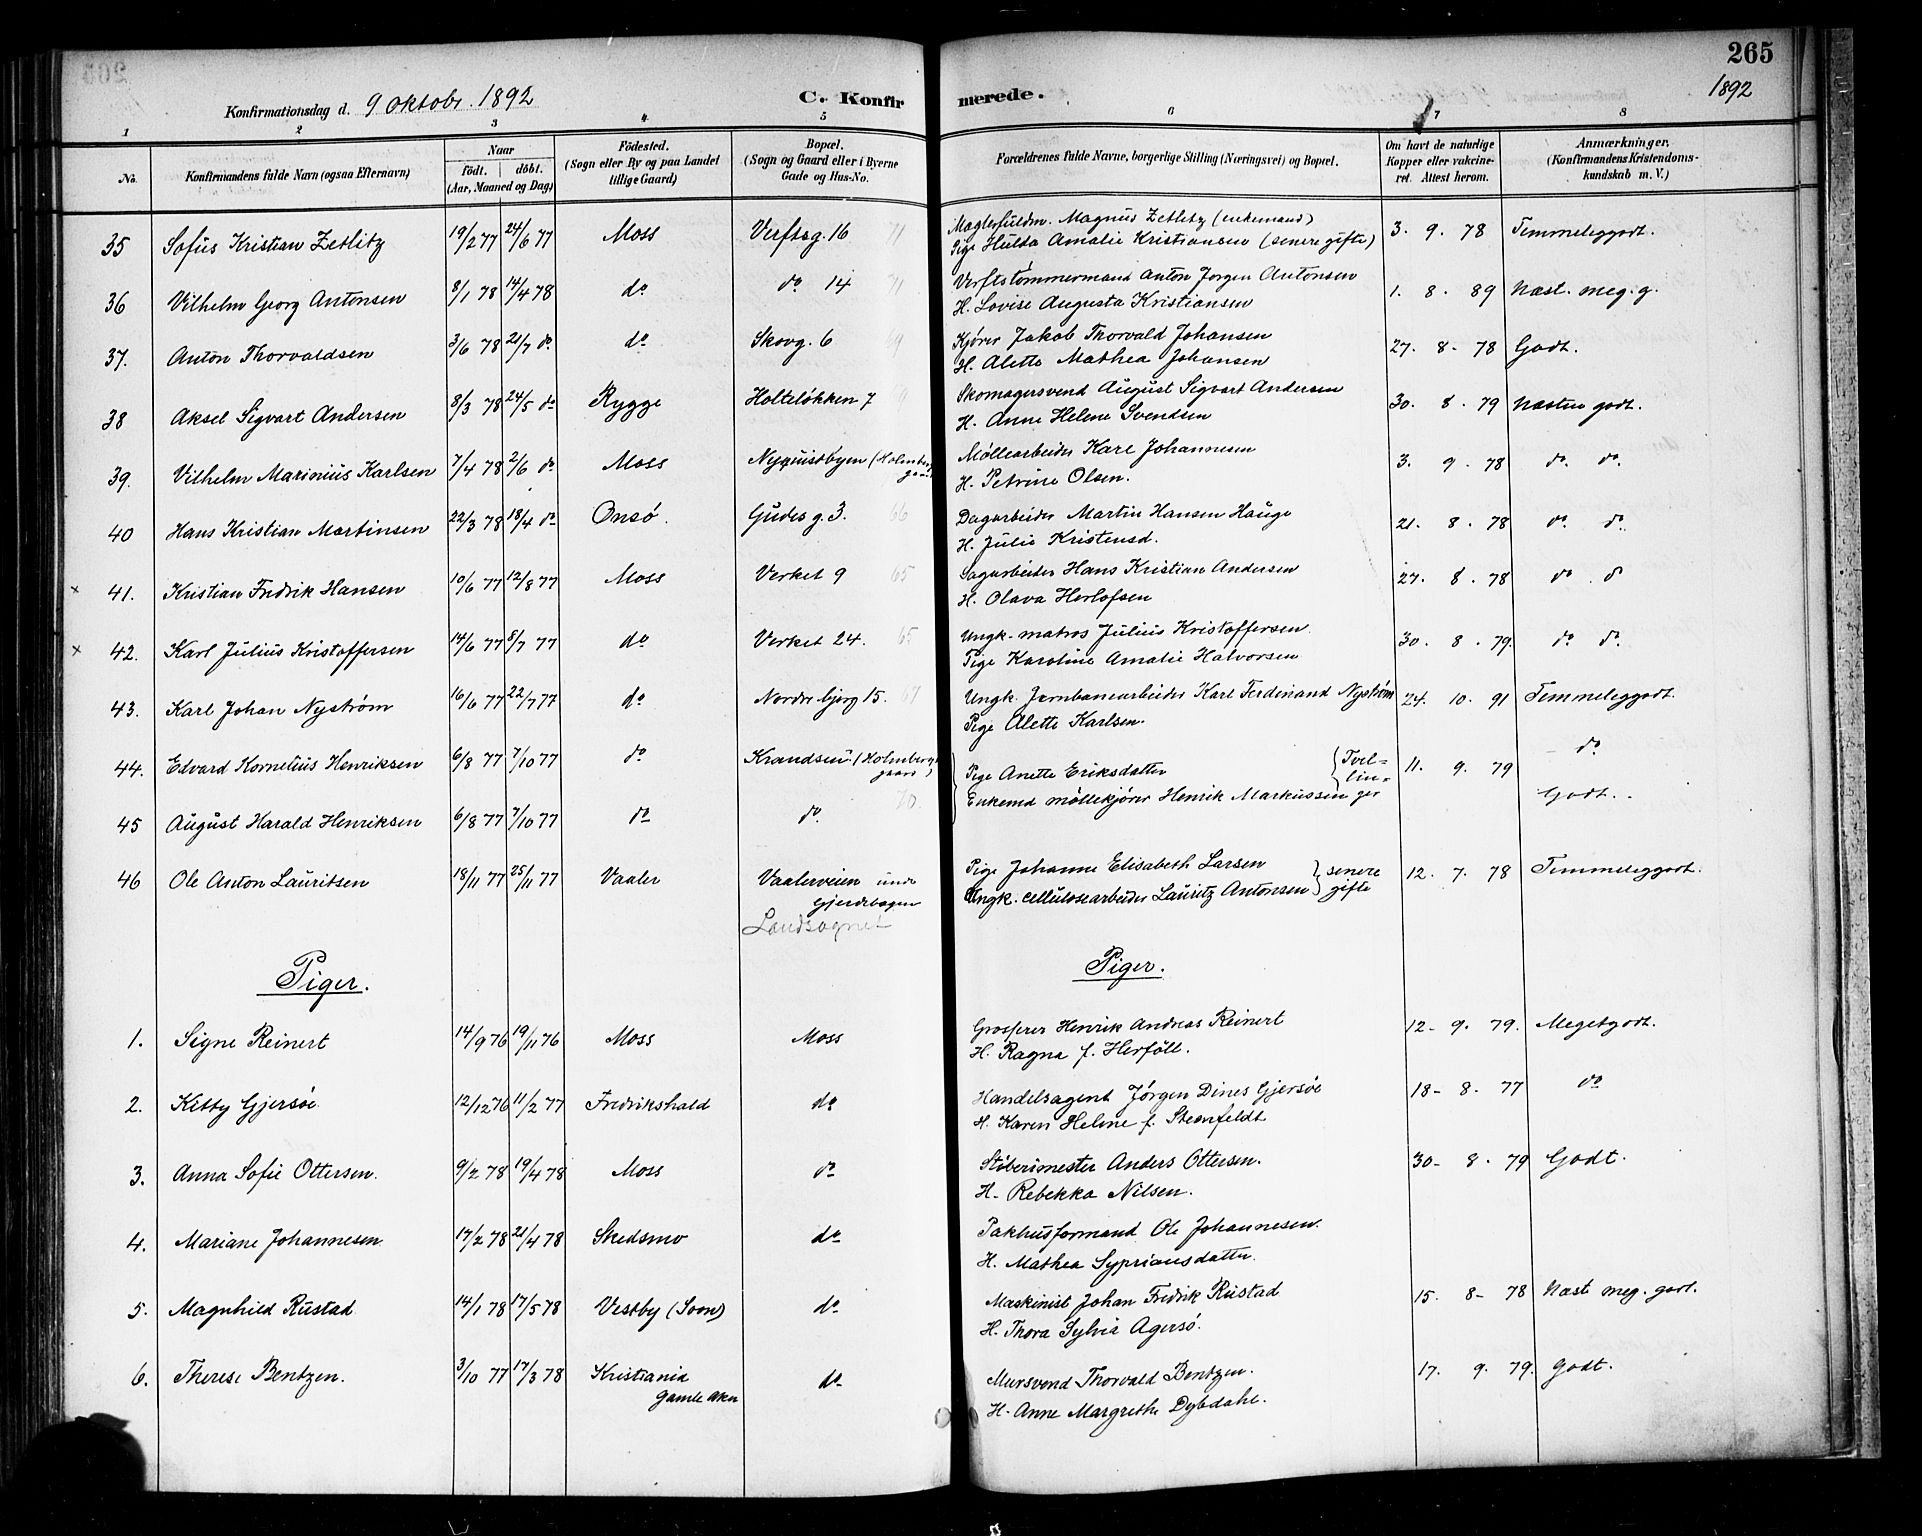 265
1892
Konfirmationsdag d. 9 Oktobr. 1892
C. Konfirmerede.
1 2 3 4 5 6 7 8
No. Konfirmandens fulde Navn (ogsaa Efternavn) Naar födt. döbt. (Aar, Maaned og Dag) Födested. (Sogn eller By og paa Landet tillige Gaard) Bopæl. (Sogn og Gaard eller i Byerne Gade og Hus-No. Forældrenes fulde Navne, borgerlige Stilling (Næringsvei) og Bopæl. Om havt de naturlige Kopper eller vakcineret. Attest herom. Anmærkninger, (Konfirmandens Kristendomskundskab m. V.)
35 Sofus Kristian Zetlitz 19/2 77 24/6 77 Moss Verftsg. 16 71 Magnus Zetlitz (enkemand)
Pige Hulda Amalie Kristiansen (senere gifte) 3. 9. 78 Temmeleggodt.
36 Vilhelm Georg Antonsen 8/1 78 14/4 78 do do 14 71 Verftstømmermand Anton Jørgen Antonsen
H. Lovise Augusta Kristiansen 1. 8. 89 Næst. meg. g.
37. Anton Thorvaldsen 3/6 78 21/7 do do Skovg. 6 69 Kjører Jakob Thorvald Johansen
H. Alette Mathea Johansen 27. 8 - 78 Godt.
38 Aksel Sigvart Andersen 8/3 78 24/5 do Rygge Holteløkken 7 Skomagersvend August Sigvart Andersen
H. Anne Helene Svendsen 30. 8. 79 Næsten godt.
39. Vilhelm Marinius Karlsen 7/4 78 2/6 do Moss Nyquistbyen (Holmberg gaard Møllearbeider Karl Johannesen
H. Petrine Olsen. 3. 9. 78 do. do.
40 Hans Kristian Martinsen 22/3 78 18/4 do Onsö. Gudesg. 3. 66 Dagarbeider Martin Hansen Hauge
H. Julie Kristensd. 21. 8. 78 do. do.
× 41. Kristian Fredrik Hansen 10/6 77 12/8 77 Moss Verket 9 65 Sagarbeider Hans Kristian Andersen
H. Olava Herlofsen 27. 8. 78 do. d
× 42. Karl Julius Kristoffersen 14/6 77 8/7 77 do Verket 24. 65 Ungk. matros Julius Kristoffersen.
Pige Karoline Amalie Halvorsen 30. 8. 79. do do.
43. Karl Johan Nyström 16/6 77 22/7 77 do Nordre bjerg 15. 67 Ungk. Jernbanearbeider Karl Ferdinand Nyström
Pige Alette Karlsen. 24. 10. 91 Temmeleggodt.
44. Edvard Kornelius Henriksen 6/8 77 7/10 77 do (Holmbergs gaard) Pige Anette Eriksdatter { Tvil- lin- 11. 9. 79 do
70. Enkemd møllekjører Henrik Markussen ger Godt.
45 August Harald Henriksen 6/8 77 7/10 77 do do.
46 Ole Anton Lauritsen 18/11 77 25/11 77 Vaaler Vaalerveien unde Gjerdebogen
Landsognet Pige Johanne Elisabeth Larsen } senere
Ungk. cellulosearbeider Lauritz Antonsen } gifte 12. 7. 78 Temmeleggodt.
Piger. Piger.
1. Signe Reinert 14/9 76 19/11 76 Moss Moss Grosserer Henrik Andreas Reinert
H. Ragna f. Herföll. 12- 9. 79. Megetgodt.
2. Kitty Gjersöe 12/12 76 11/2 77 Fredrikshald do Handelsagent Jörgen Dines Gjersöe
H. Karen Helene f. Steenfeldt 18- 8- 77 do
3. Anna Sofie Ottersen. 9/2 78 19/4 78 Moss do Stöberimester Anders Ottersen.
H. Rebekka Nilsen. 30- 8. 79 Godt.
4. Mariane Johannesen 17/2 78 21/4 78 Skedsmo do Pakhusformand Ole Johannesen.
H. Mathea Syprionsdatter.
5. Magnhild Rustad 14/1 78 17/5 78 Vestby (Soon) do Maskinist Johan Fredrik Rustad
H. Thora Sylvia Agersö. 15. 8- 78 Næst meg. godt.
6. Therese Bentzen. 3/10 77 17/3 78 Kristiania Gamle Aker do Mursvend Thorvald Bentzen.
H. Anne Margrethe Dybdahl. 17. 9. 79. Godt.